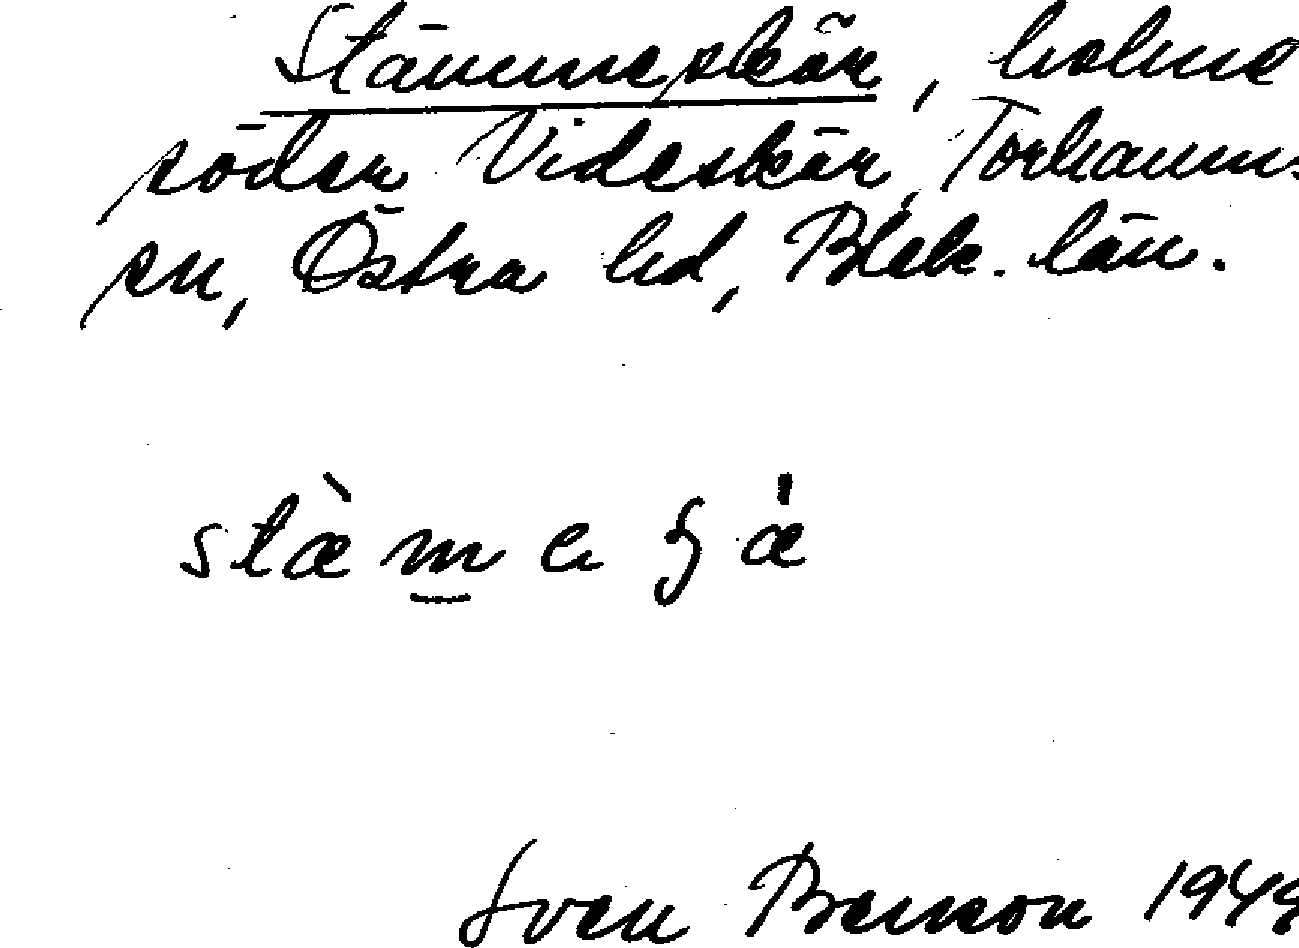 Stämmeskär, holme
söder Videskär, Torhamns
sn, Östra hd, Blek. län.
stæ̀m̲eʂǽ
Sven Benson 1949